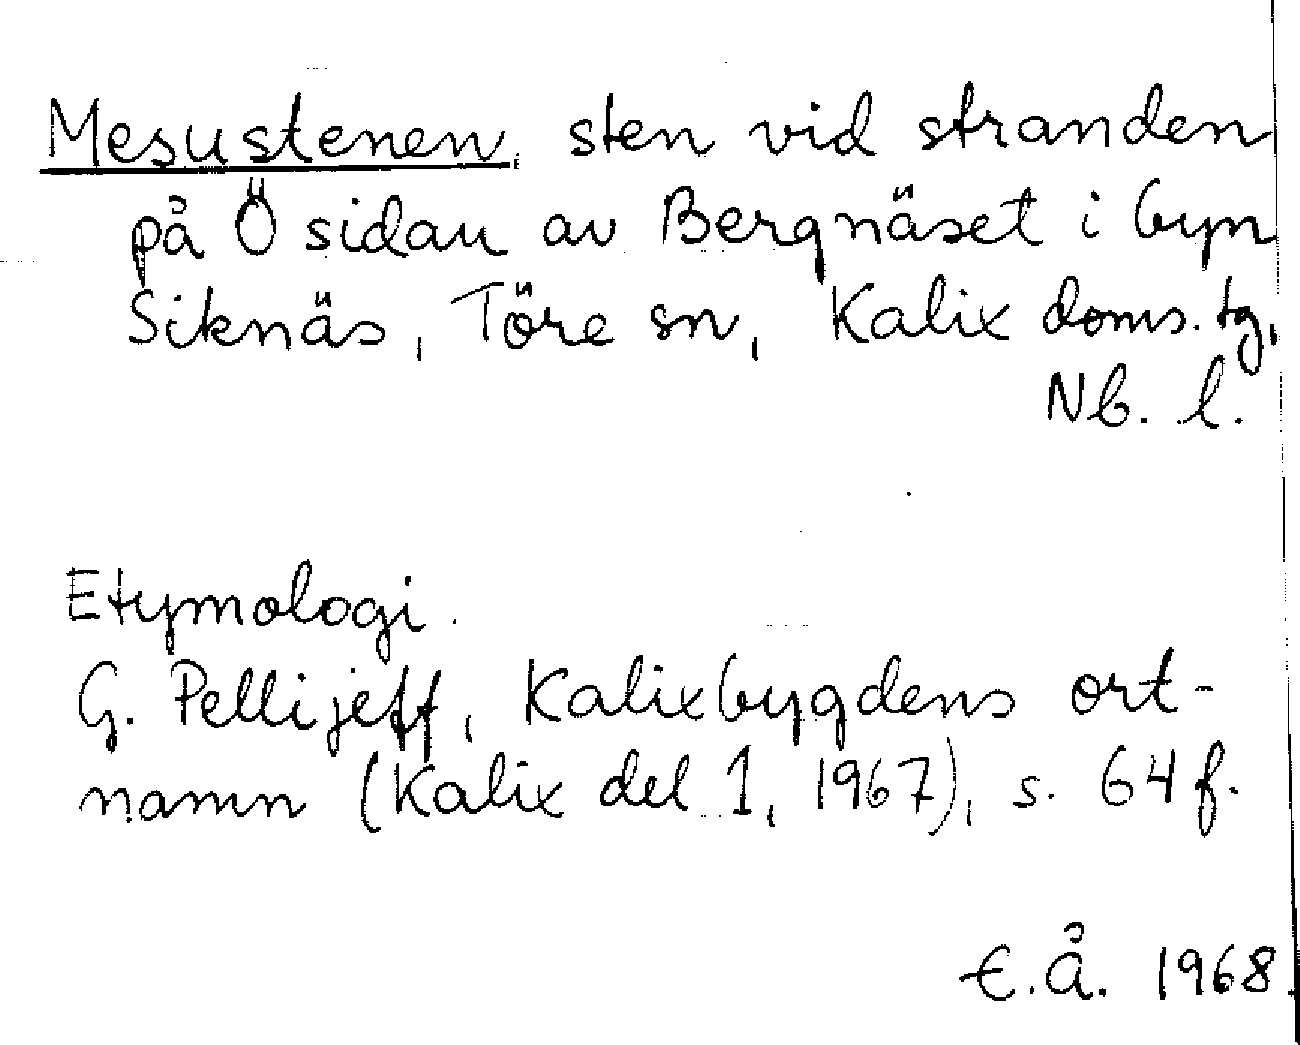 Mesustenen, sten vid stranden
på Ö sidan av Bergnäset i byn
Siknäs, Töre sn, Kalix doms. tg,
Nb. l.
Etymologi.
G. Pellijeff, Kalixbygdens ort-
namn (Kalix del 1, 1967), s. 64 f.
E.Å. 1968.